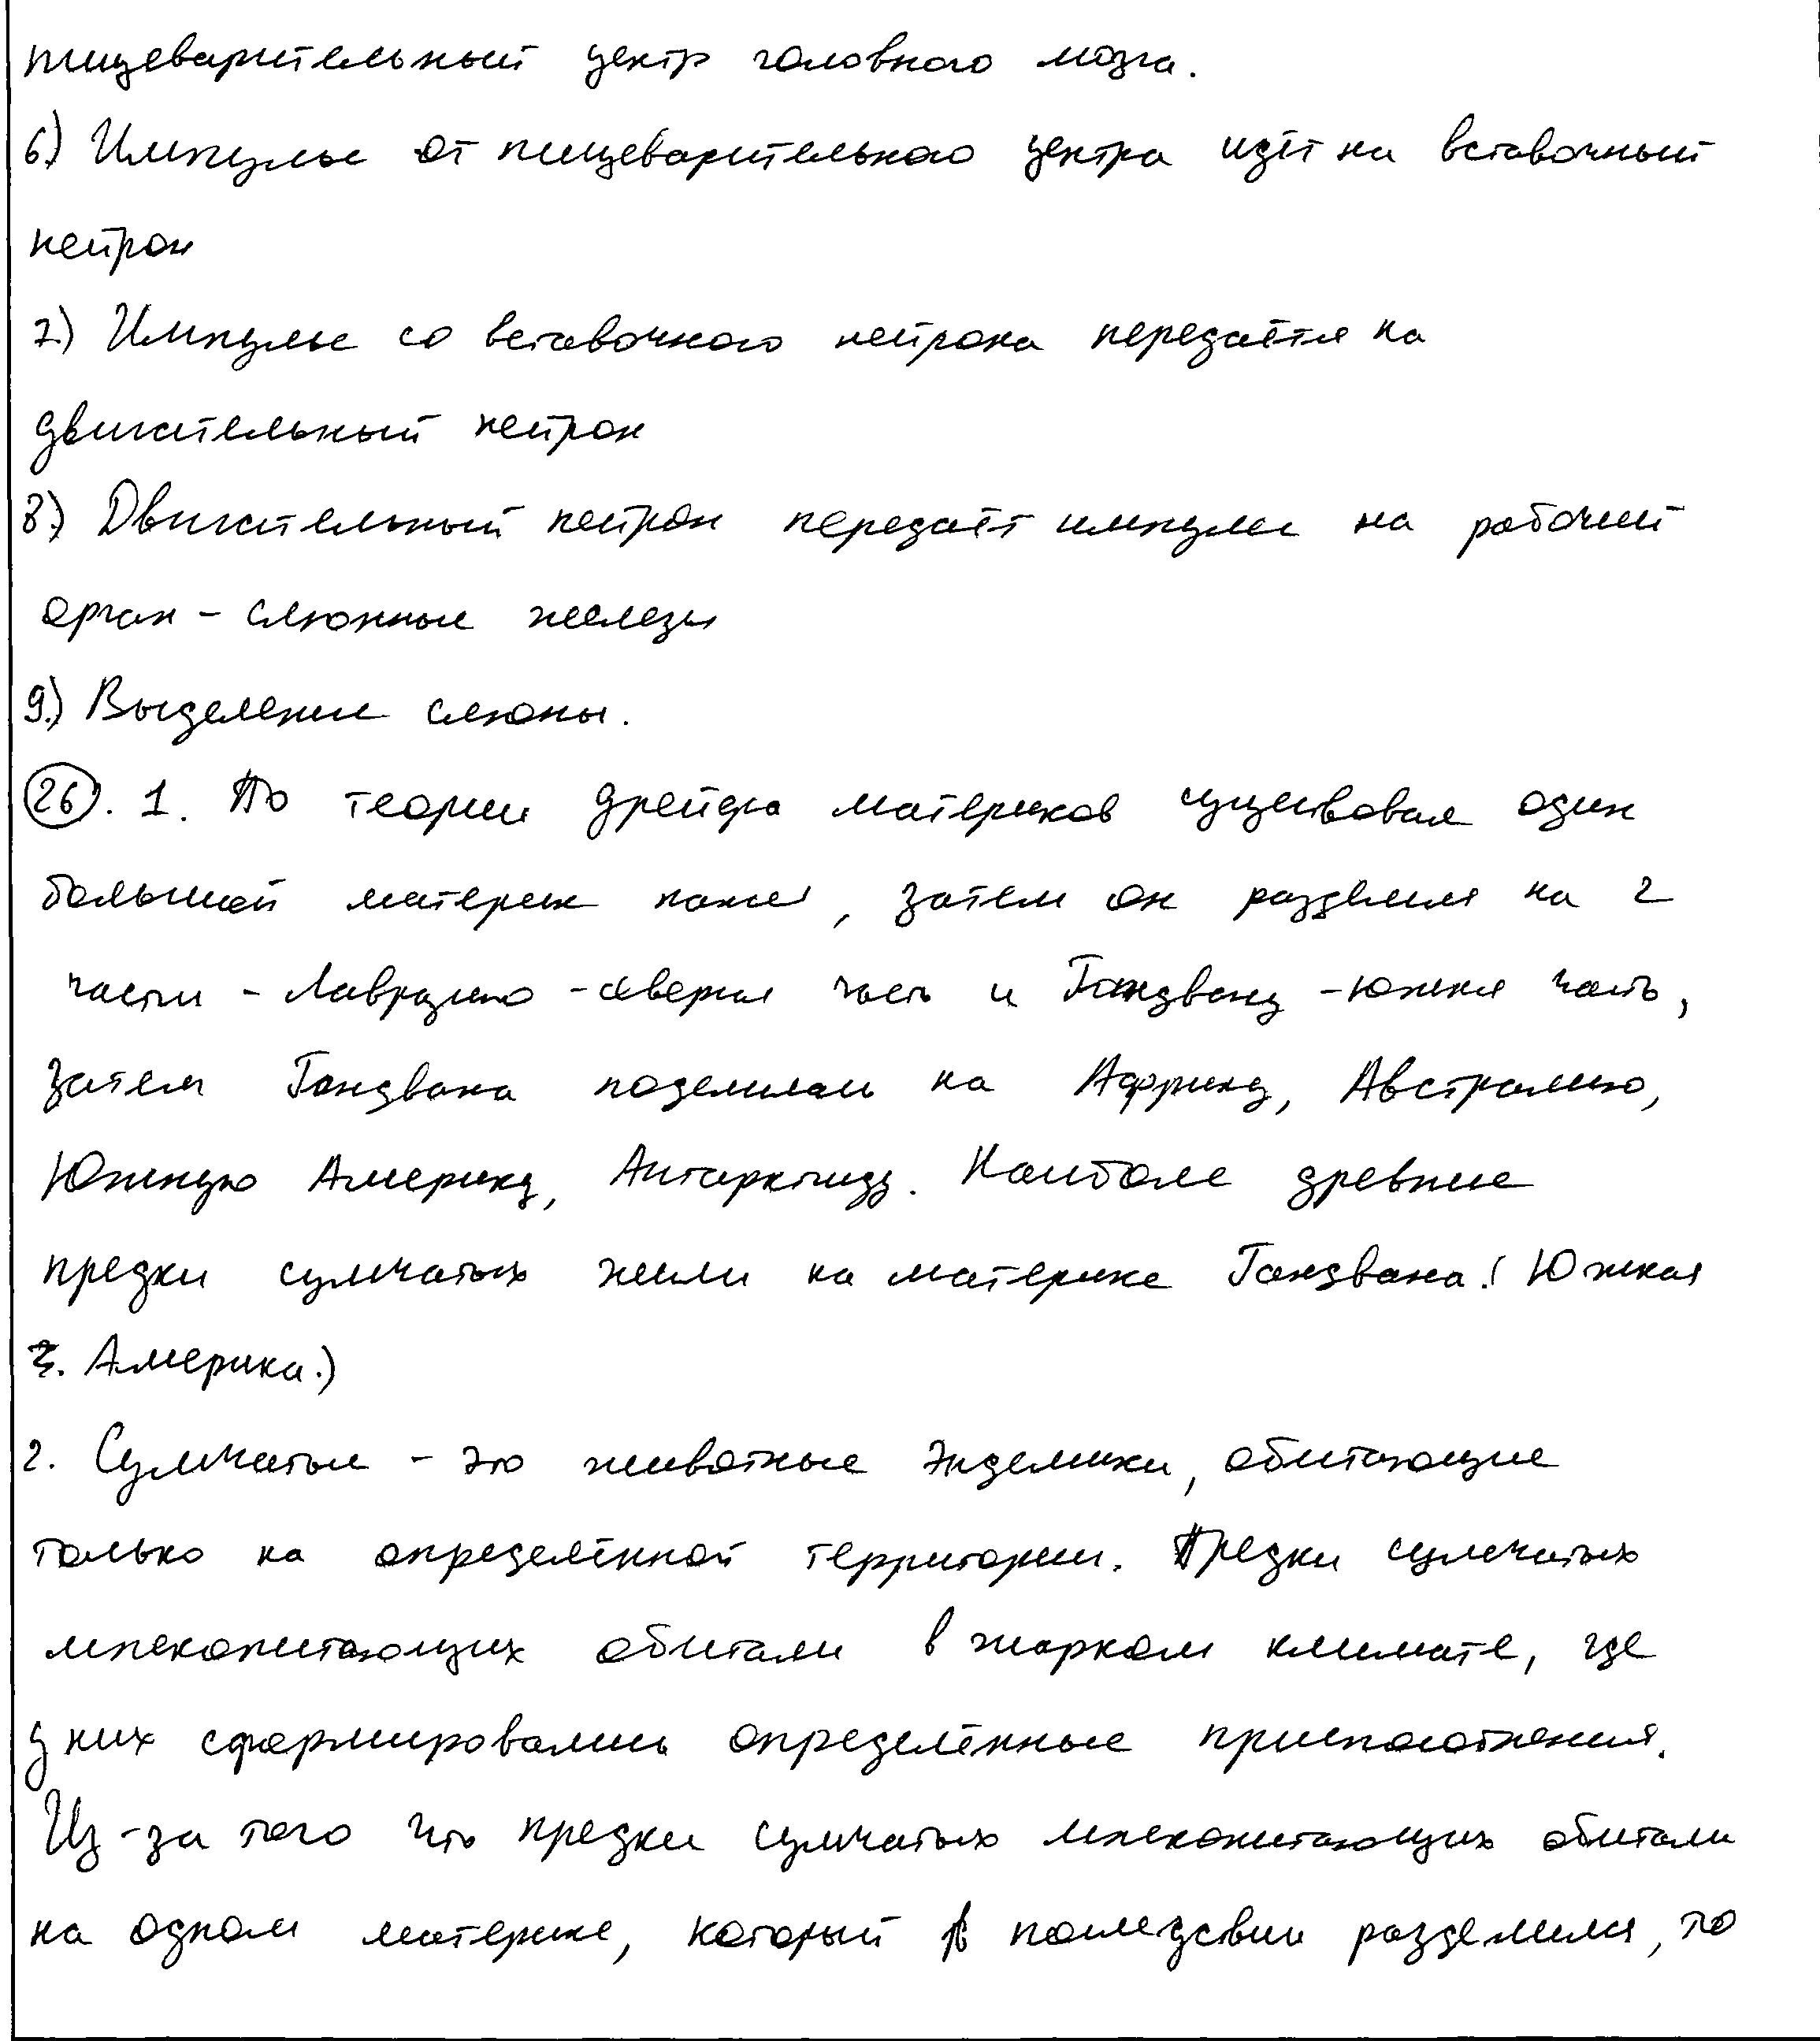 пищеварительный центр головного мозга.
6) Импульс от пищеварительного центра идёт на вставочный
нейрон
7) Импульс со вставочного нейрона передаётся на
двигательный нейрон
8) Двигательный нейрон передаёт импульс на рабочий
орган - слюнные железы
9) Выделение слюны.
26. 1. По теории дрейфа материков существовал один
большой материк , затем он разделился на 2
части - Лавразию - северная часть и Гондвану - южная часть,
затем Гондвана поделилась на Африку, Австралию,
Южную Америку, Антарктиду. Наиболее древние
предки сумчатых жили на материке Гондвана. (Южная
Америка.)
2. Сумчатые - это животные эндемики, обитающие
только на определённой территории. Предки сумчатых
млекопитающих обитали в жарком климате, где
у них сформировались определённые приспособления.
Из-за того что предки сумчатых млекопитающих обитали
на одном материке, который в последствии разделился, то